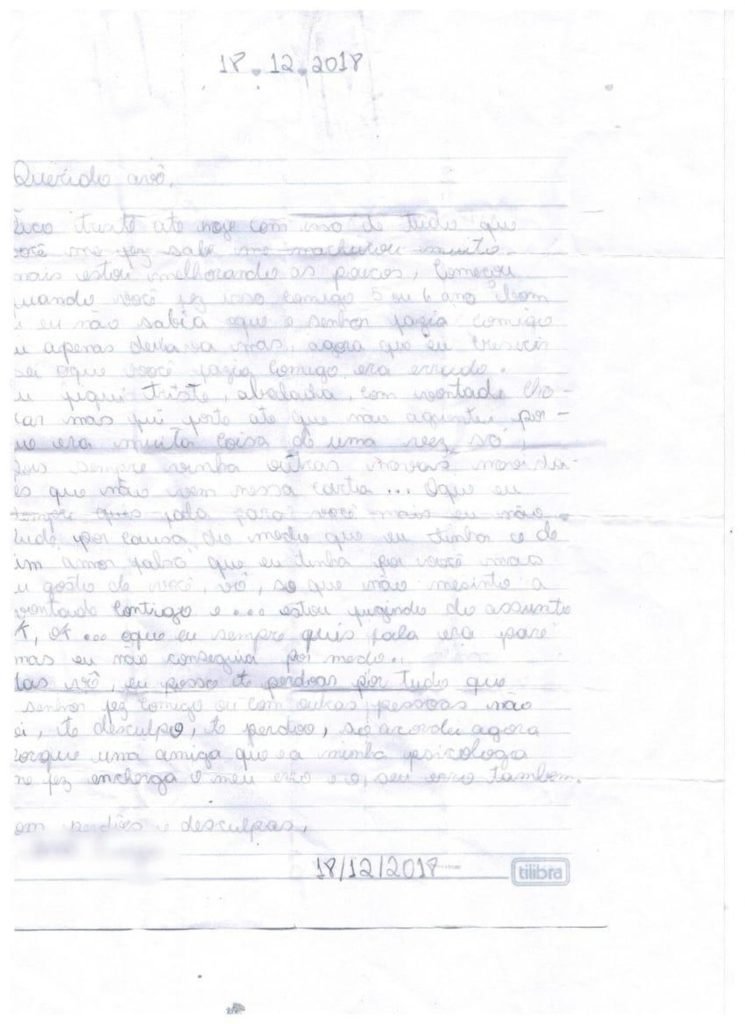 18.12.2018
Querido avô,
fico triste ate hoje com isso de tudo que
você me fez sabe me machucou muito.
mais estou melhorando as poucos, Começou
quando você fez isso comigo 5 ou 6 ano
e eu não sabia oque o senhor fazia comigo
u apenas deixava mas, agora que eu cresci
sei oque você fazia comigo era errado.
u fiquei triste, abalada, com vontade cho-
rar mas fui forte ate que não aguentei por-
ue era muita coisa de uma vez só,
pois sempre vinha outras novas novida-
es que não vem nessa carta... Oque eu
sempre quis fala para você mais eu não
pude por causa do medo que eu tinha e de
um amor falso que eu tinha por você mas
u gosto de você, vô, so que não mesinto a
vontade contigo e... estou fugindo do assunto
k, ok... oque eu sempre quis fala era pare
mas eu não conseguia por medo..
Mas vô, eu posso te perdoar por tudo que
senhor fez comigo ou com outras pessoas não
ei, te desculpo, te perdoo, so acordei agora
porque uma amiga que é a minha psicologa
me fez enchorga o meu erro e o, seu erro tambem.
om perdões e desculpas,
18/12/2018
tilibra